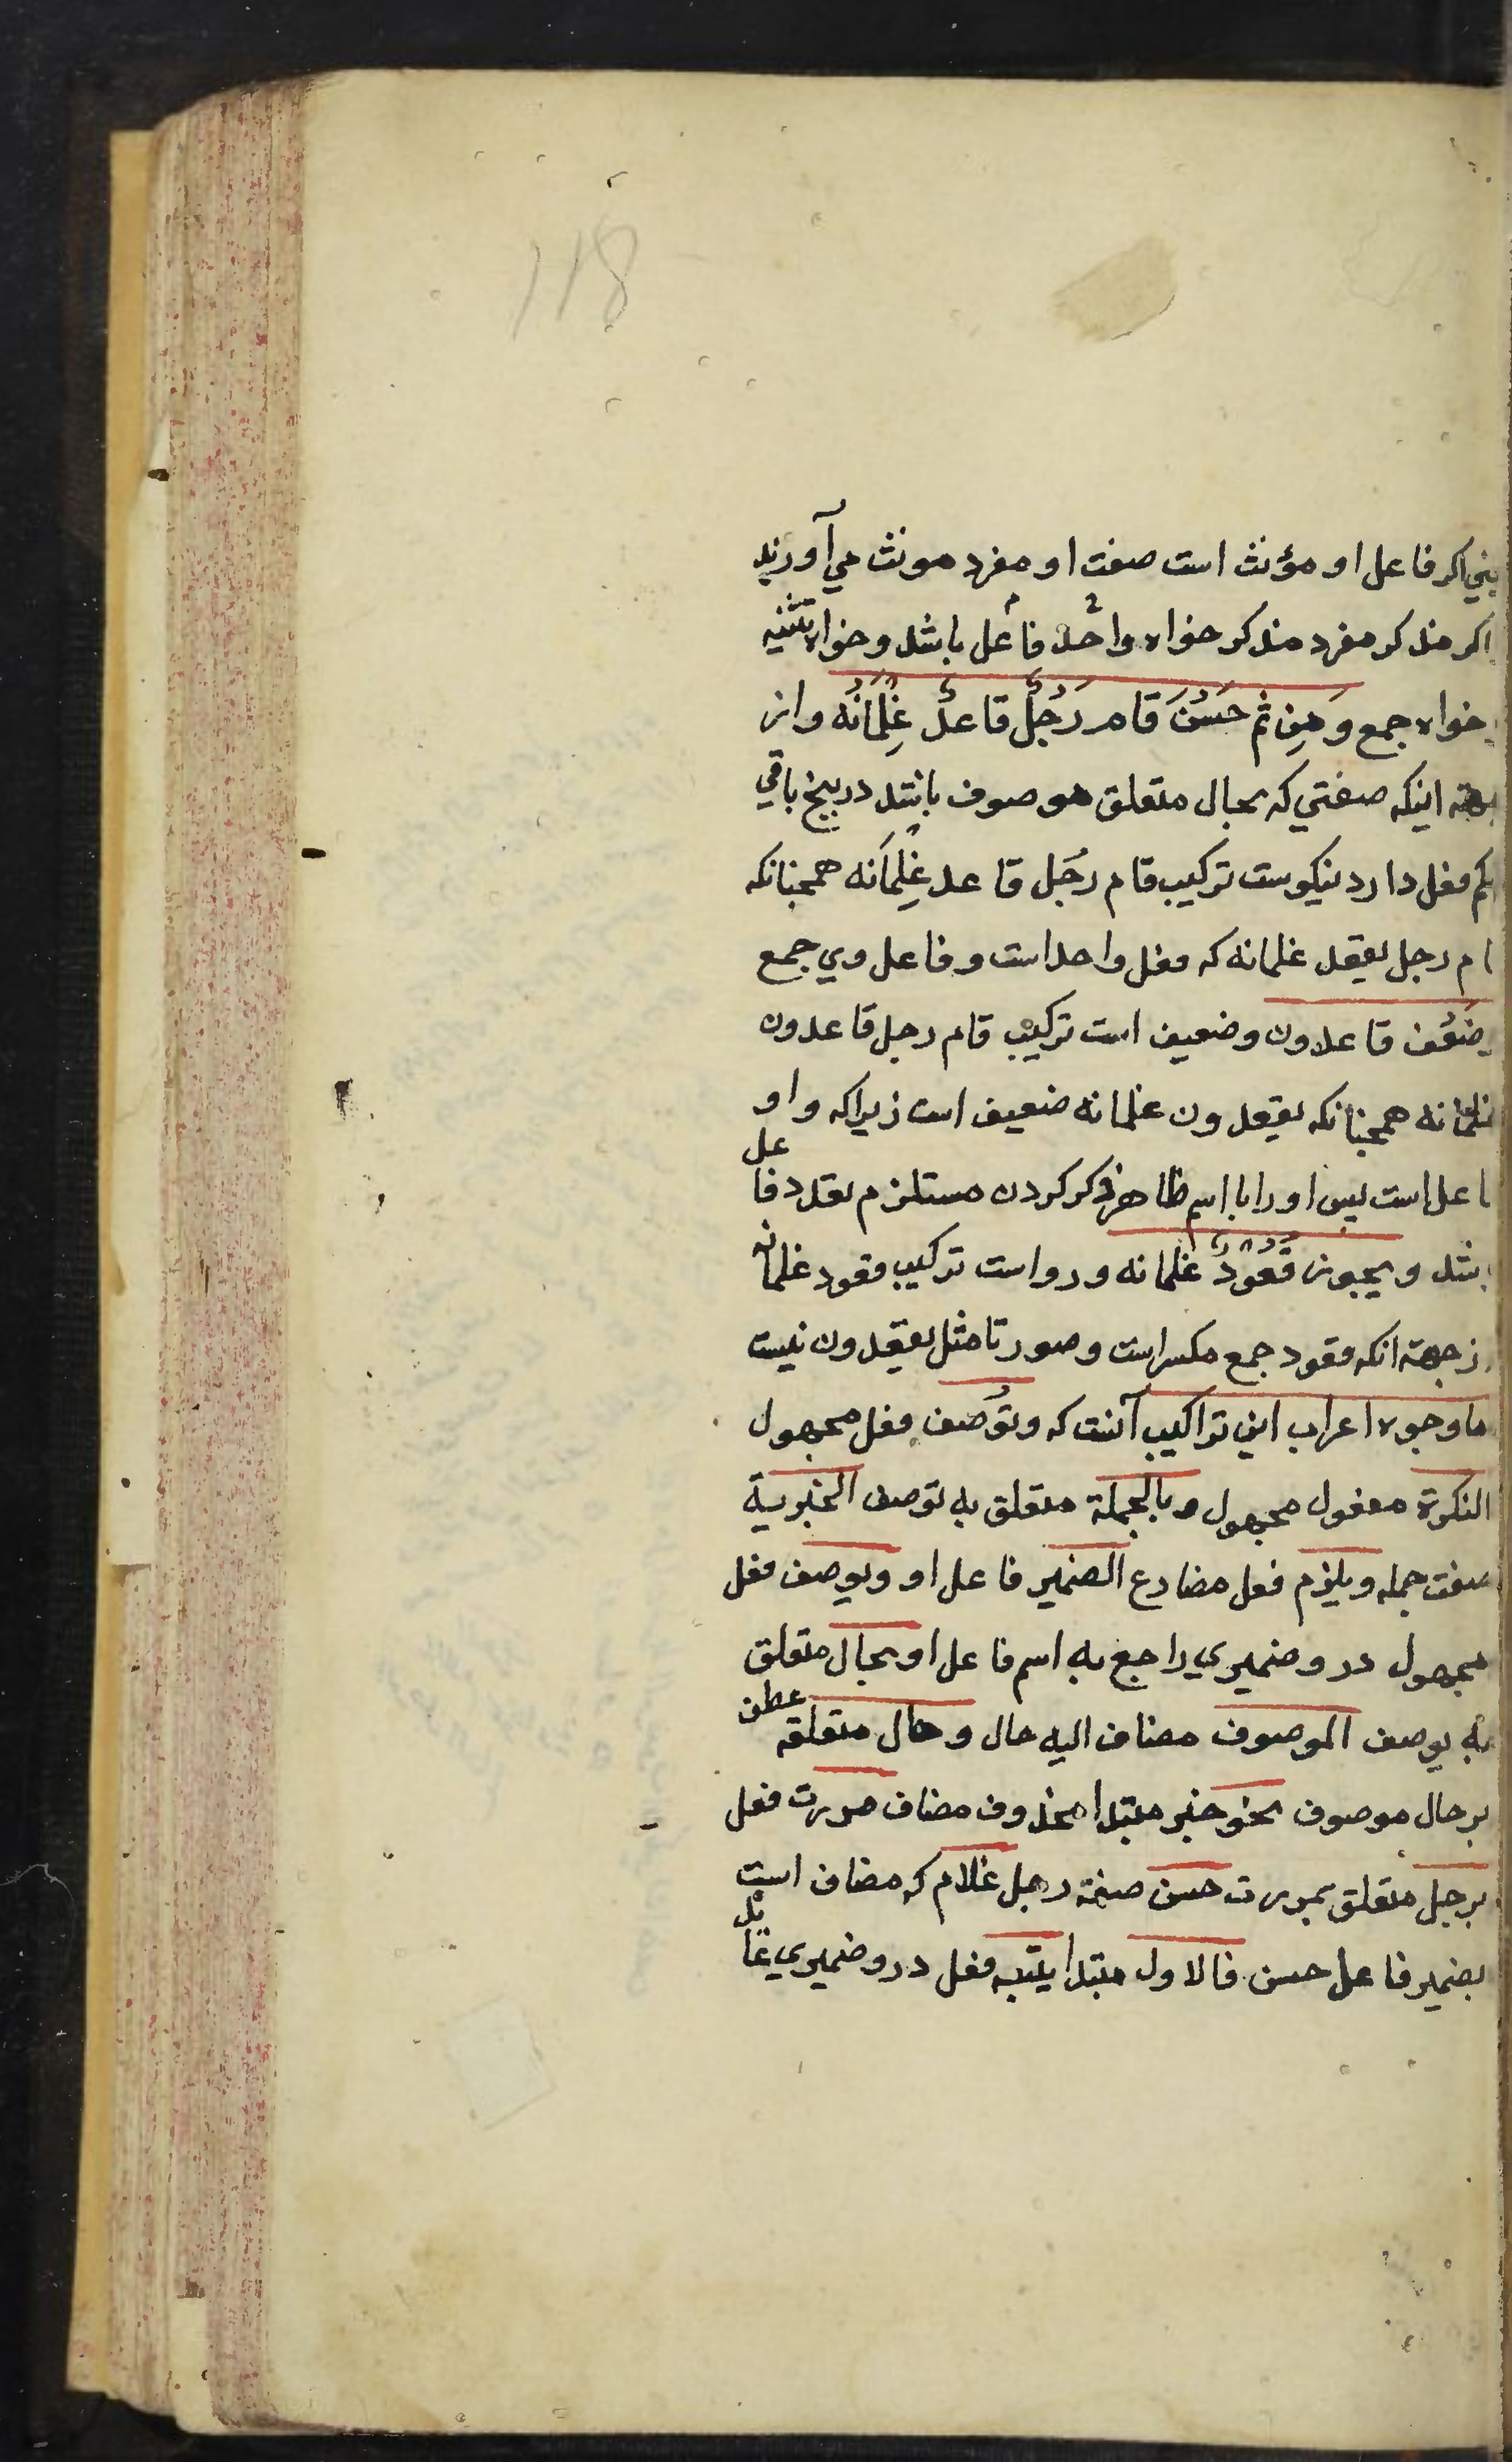 118
يعني اكر فاعل او مؤنث است صفت او مفرد مونث مي آورند
اكر مذكر مفرد مذكر خواه واحد فاعل باشد وخواه تثنيه
خواه جمع وَمِن ثَمَّ حَسُنَ قام رَجُلٌ قاعدٌ غِلمانُه واز
جهة اينكه صفتي كه بحال متعلق موصوف باشد در پنج باقي
حكم فعل دارد نيكوست تركيب قام رجل قاعد غِلمانه همچنانكه
قام رجل يقعد غلمانه كه فعل واحد است وفاعل وي جمع
وضَعُف قاعدون وضعيف است تركيب قام رجل قاعدون
غلمانه همچنانكه يقعدون غلمانه ضعيف است زيراكه واو
فاعل است پس او را با اسم ظاهر ذكر كردن مستلزم تعدد فاعل
باشد ويجوز قُعُودٌ غلمانه ورواست تركيب قعود غلمانه
از جهة انكه قعود جمع مكسر است وصورتا مثل يقعدون نيست
اما وجوه اعراب اين تراكيب آنست كه وتُوصف فعل مجهول
النكرة مفعول مجهول وبالجملة متعلق به توصف الخبرية
صفت جمله ويلزم فعل مضارع الضمير فاعل او ويوصف فعل
مجهول در وضميري راجع به اسم فاعل او بحال متعلق
به يوصف الموصوف مضاف اليه حال وحال متعلقه عطف
بر حال موصوف نحو خبر مبتدا محذوف مضاف مررت فعل
برجل متعلق بمررت حسن صفة رجل غلام كه مضاف است
بضمير فاعل حسن فالاول مبتدا يتبعه فعل در وضميري